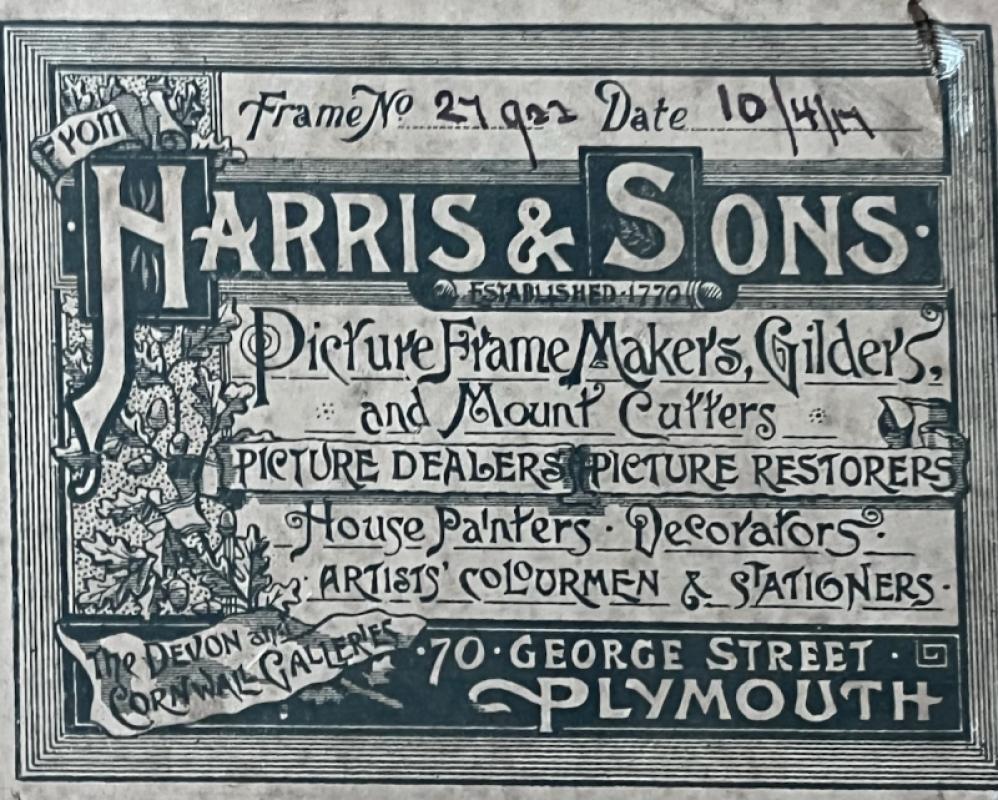 Frame No 27 Date 10/4/17
From
HARRIS & SONS.
ESTABLISHED·1770
Picture Frame Makers, Gilders,
and Mount Cutters
PICTURE DEALERS PICTURE RESTORERS
House Painters · Decorators ·
· ARTISTS' COLOURMEN & STATIONERS ·
The DEVON and
CORNWALL GALLERIES
·70· GEORGE STREET ·
PLYMOUTH